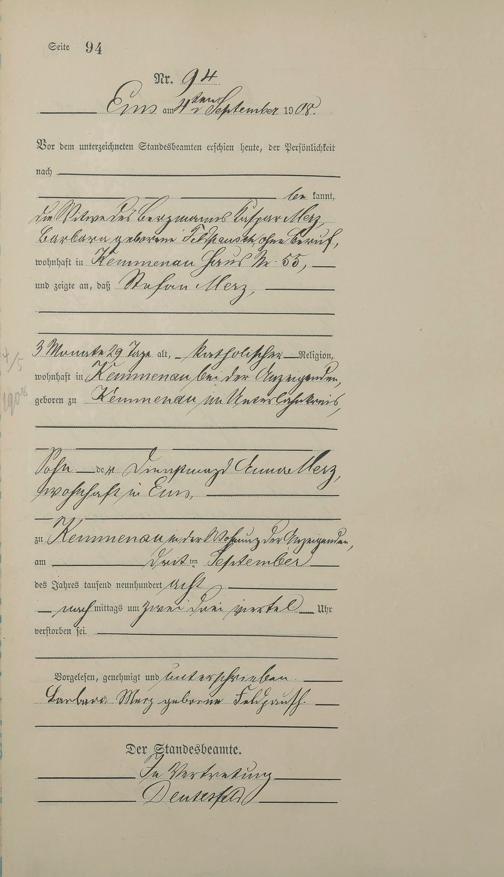 Seite 94
Nr. 94
Ems am 4ten September 1908.
Vor dem unterzeichneten Standesbeamten erschien heute, der Persönlichkeit
nach
bekannt,
die Witwe des Bergmanns Kaspar Merz,
Barbara geborene Feldpausch, ohne Beruf,
wohnhaft in Kemmenau Haus Nr. 55,
und zeigte an, daß Stefan Merz,
3 Monate 29 Tage alt, katholischer Religion,
wohnhaft in Kemmenau bei der Anzeigenden,
geboren zu Kemmenau im Unterlahnkreis,
Sohn der Dienstmagd Anna Merz,
wohnhaft in Ems,
zu Kemmenau in der Wohnung der Anzeigenden,
am dritten September
des Jahres tausend neunhundert acht
nachmittags um zwei drei viertel Uhr
verstorben sei.
Vorgelesen, genehmigt und unterschrieben
Barbara Merz geborne Feldpausch
Der Standesbeamte.
In Vertretung
4/5